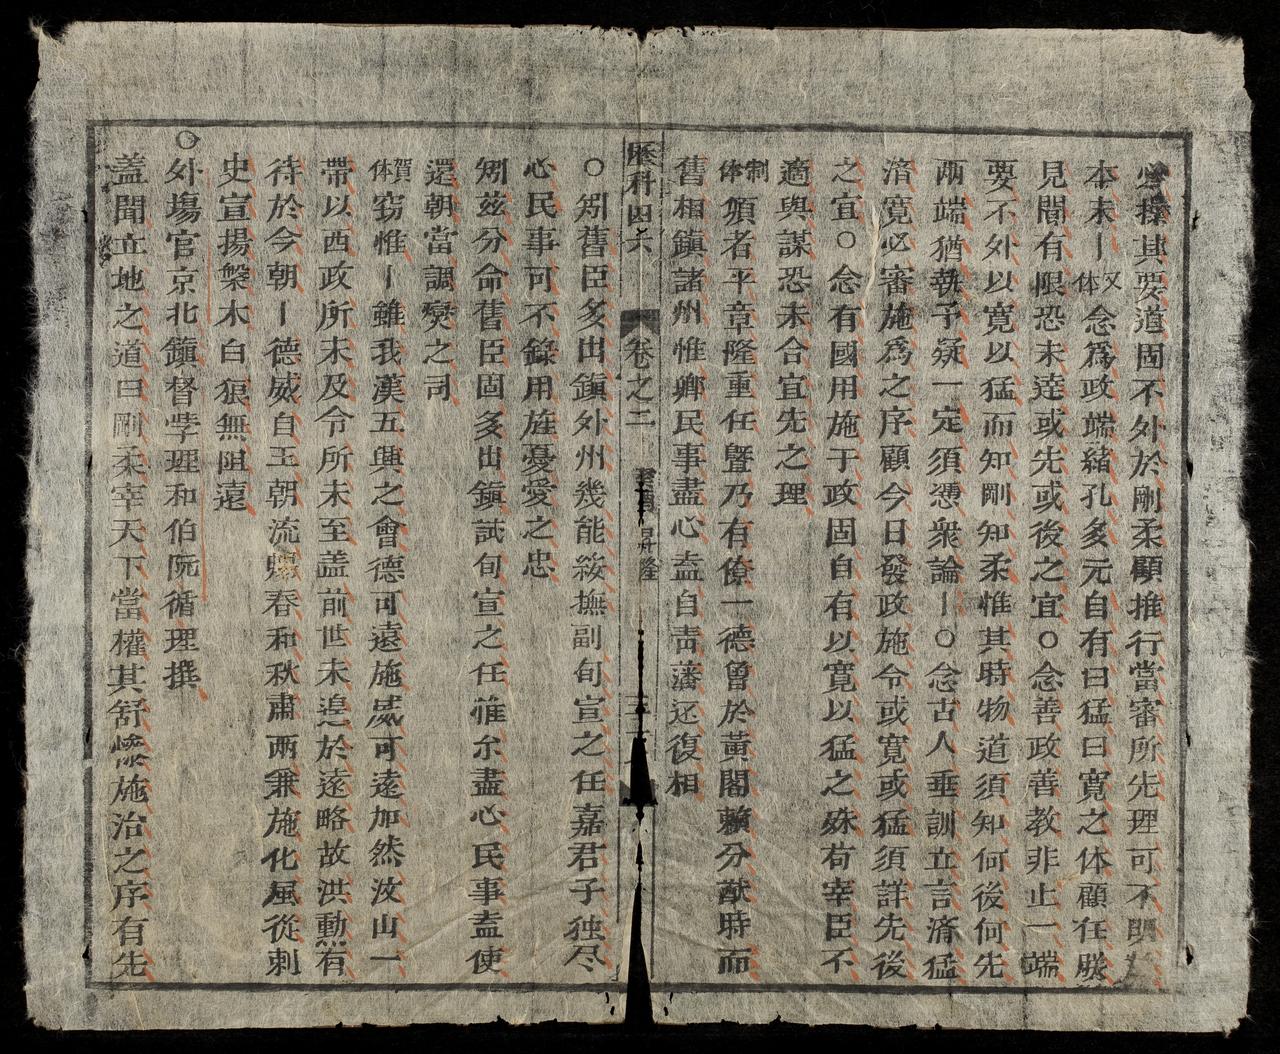 必操其要道固不外於剛柔顧推行當審所先理可不明
本末丨又体念爲政端緒孔多元自有曰猛曰寛之体顧任朕
見聞有限恐未逹或先或後之宜○念善政善教非止一端
要不外以寛以猛而知剛知柔惟其時物道須知何後何先
两端猶執予疑一定須憑衆論丨○念古人垂訓立言済猛
済寛必審施爲之序顧今日發政施令或寛或猛須詳先後
之宜○念有國用施于政固自有以寛以猛之殊苟宰臣不
適與謀恐未合宜先之理
制体頒者平章隆重任曁乃有僚一德曾於黃閣賴分猷時而
舊相鎮諸州惟卿民事盡心盍自靑藩还復相
歷科四六
卷之二
昇隆
○矧舊臣多出鎮外州幾能綏撫副旬宣之任嘉君子独尽
心民事可不錄用旌憂愛之忠
矧兹分命舊臣固多出鎮試旬宣之任惟尒盡心民事盍使
還朝當調爕之司
賀体窃惟丨雖我漢五興之會德可遠施威可遠加然汶山一
帶以西政所未及令所未至盖前世未遑於遠略故洪勳有
待於今朝丨德威自王朝流暢春和秋肅两兼施化風從刺
史宣揚槃木白狼無阻遠
○外塲官京北鎮督孝理和伯阮循理撰
盖聞立地之道曰剛柔宰天下當權其舒慘施治之序有先